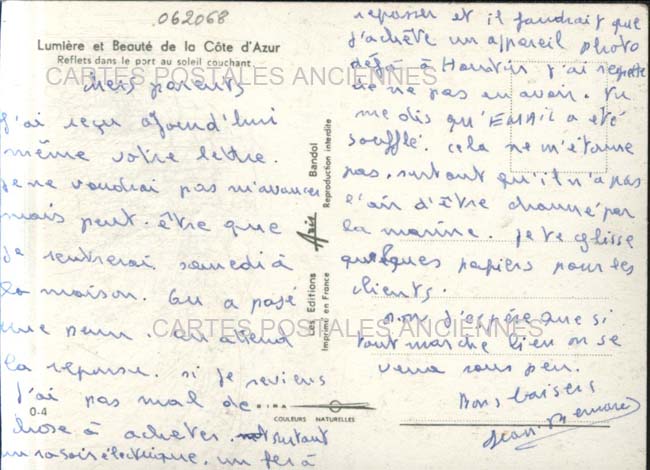 062068
Lumière et Beauté de la Côte d'Azur
Reflets dans le port au soleil couchant
CARTES POSTALES ANCIENNES
Mes parents
J'ai reçu aujourd'hui
même votre lettre.
Je ne voudrai pas m'avancer
mais peut-être que
je rentrerai samedi à
la maison. On a posé
une perm. on attend
la reponse. si je reviens
J'ai pas mal de
chose à acheter. surtout
un rasoir électrique. un fer à
0-4
Les Editions Azis Bandol
Imprimé en France Reproduction interdite
CARTES POSTALES ANCIENNES
COULEURS NATURELLES
repasser et il faudrait que
j'achète un appareil photo
déjà à j'ai
de ne pas en avoir. Tu
me dis qu'EMAIL a eté
soufflé. cela ne m'étonne
pas. surtout qu'il n'a pas
l'air d'être par
la marine. je te glisse
quelques papiers pour les
clients.
bon j'espère que si
tout marche bien on se
verra sous peu.
Bons baisers
Jean. Bernard